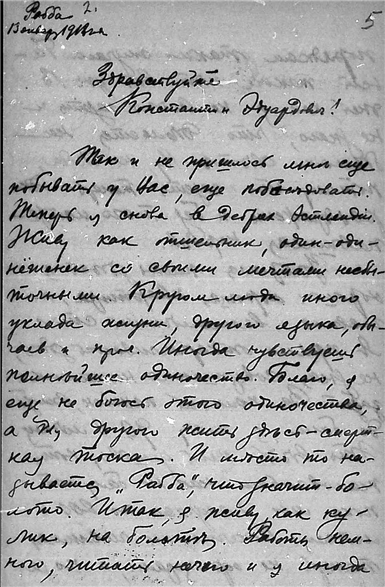 Рабба 2. 5
13 января 19
Здравствуйте
Константин Эдуардович!
Так и не пришлось мне еще
побывать у Вас, еще побеседовать.
Теперь я снова в дебрях Эстляндии.
Живу как отшельник, один-оди-
нёшенек со своими мечтами несбы-
точными. Кругом люди иного
уклада жизни, другого языка, обы-
чаев и проч. Иногда чувствуешь
полнейшее одиночество. Благо, я
еще не боюсь этого одиночества,
а для другого жить здесь-смерт-
ная тоска. И место то на-
зывается „Рабба", что значит-бо-
лото. Итак, я живу, как ку-
лик, на болоте. Работы нем-
ного, читать нечего и я иногда